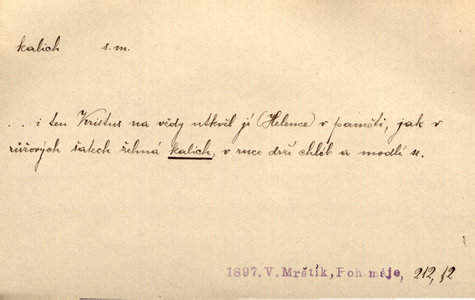 kalich s. m.
. . i ten Kristus na vždy utkvěl jí (Helence) v paměti, jak v
růžových šatech žehná kalich, v ruce drží chléb a modlí se.
1897, V. Mrštík, Poh. máje, 212, 12